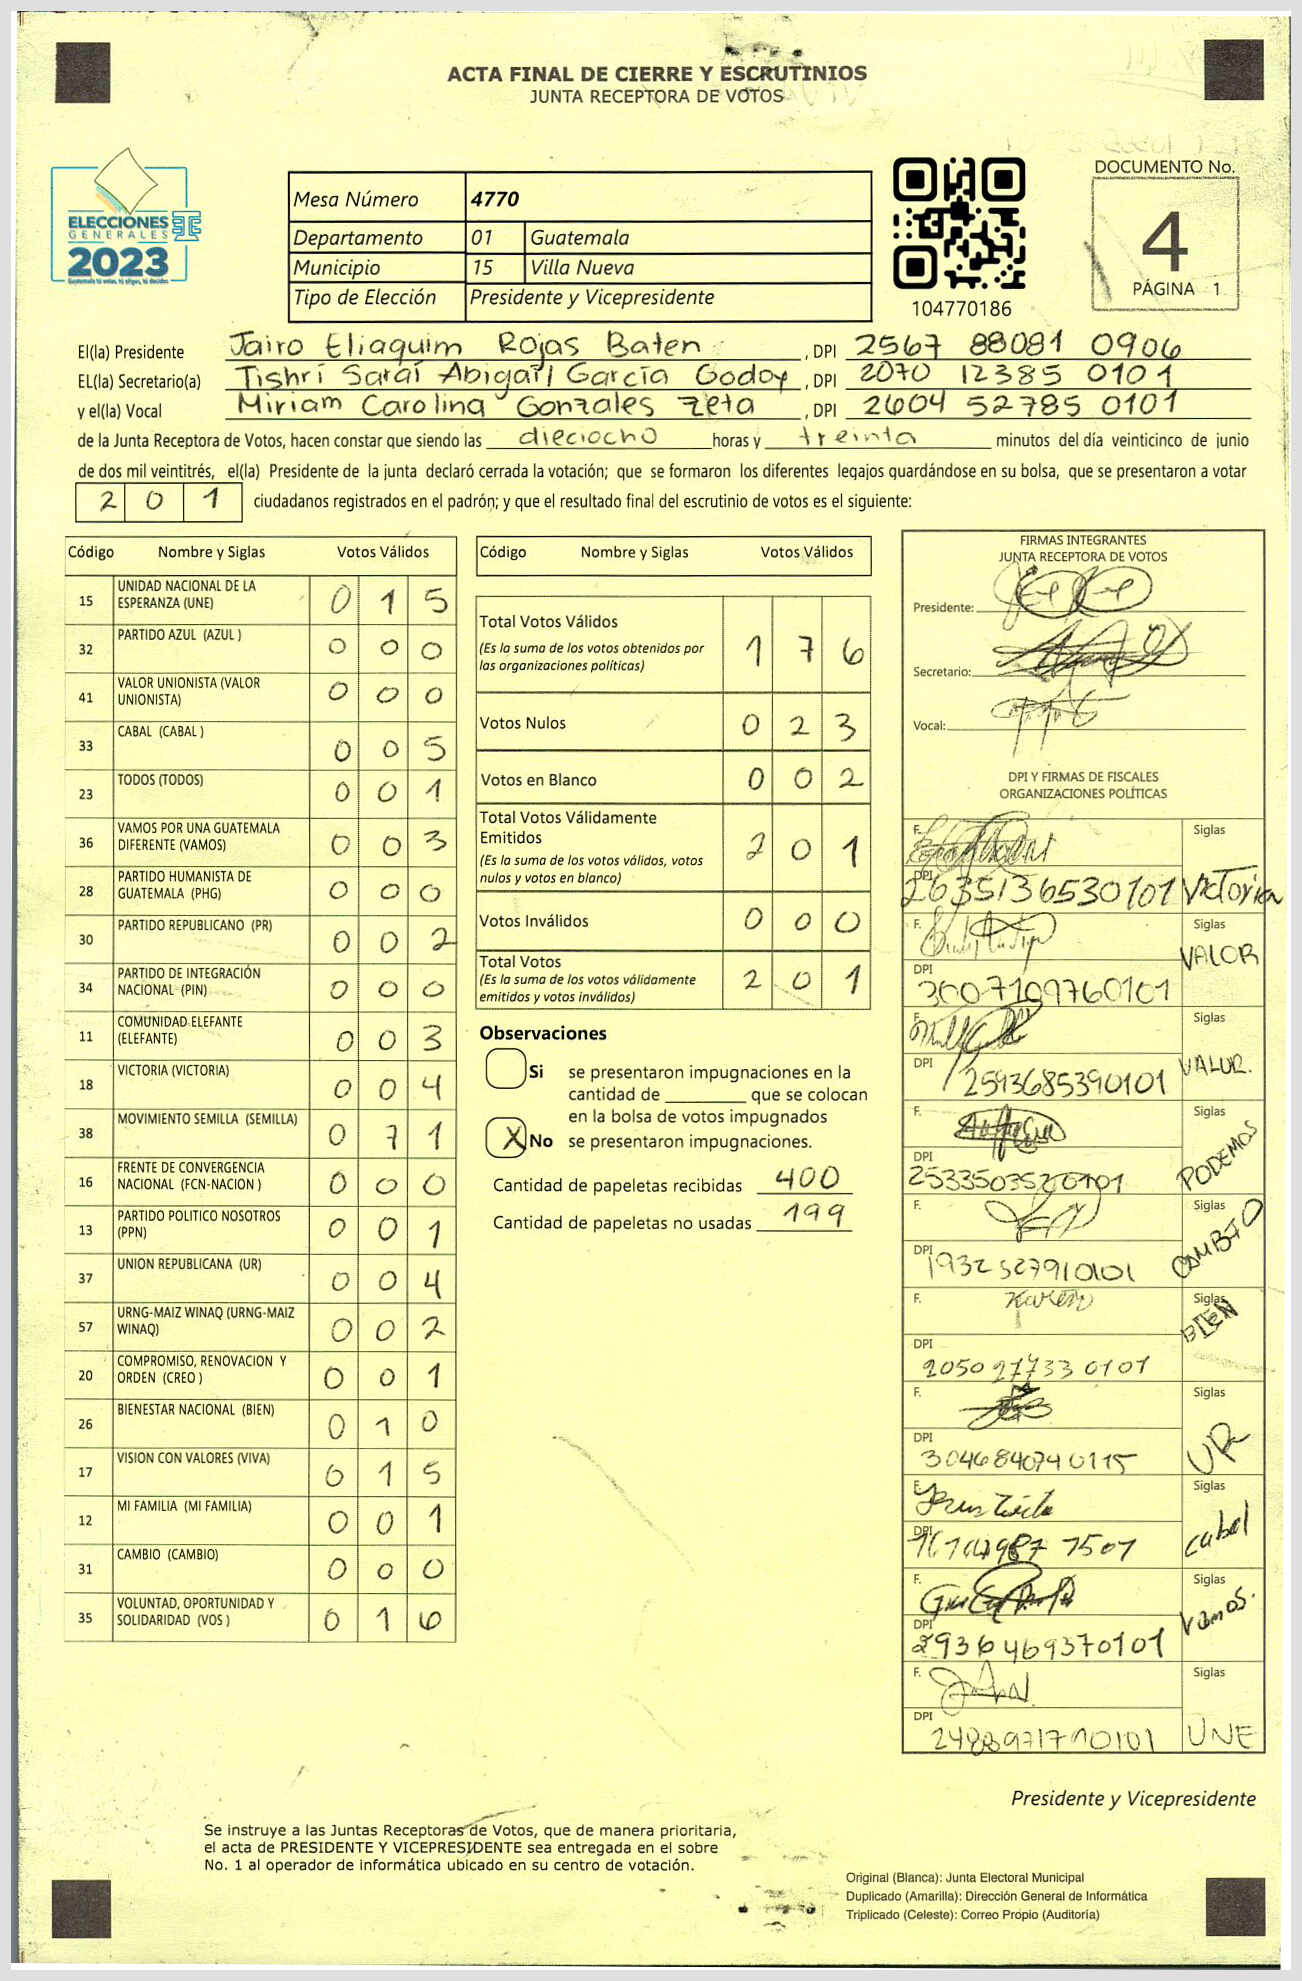 ACTA FINAL DE CIERRE Y ESCRUTINIOS
JUNTA RECEPTORA DE VOTOS
ELECCIONES
GENERALES
2023
Guatemala tú votas, tú eliges, tú decides
Mesa Número 4770
Departamento 01 Guatemala
Municipio 15 Villa Nueva
Tipo de Elección Presidente y Vicepresidente
104770186
DOCUMENTO No.
4
PÁGINA 1
El(la) Presidente Jairo Eliaquim Rojas Baten, DPI 2567 88081 0906
EL(la) Secretario(a) Tishri Saraí Abigail García Godoy, DPI 2070 12385 0101
y el(la) Vocal Miriam Carolina Gonzales Zeta, DPI 2604 52785 0101
de la Junta Receptora de Votos, hacen constar que siendo las dieciocho horas y treinta minutos del día veinticinco de junio
de dos mil veintitrés, el(la) Presidente de la junta declaró cerrada la votación; que se formaron los diferentes legajos guardándose en su bolsa, que se presentaron a votar
201 ciudadanos registrados en el padrón; y que el resultado final del escrutinio de votos es el siguiente:
Código Nombre y Siglas Votos Válidos
15 UNIDAD NACIONAL DE LA ESPERANZA (UNE) 0 1 5
32 PARTIDO AZUL (AZUL ) 0 0 0
41 VALOR UNIONISTA (VALOR UNIONISTA) 0 0 0
33 CABAL (CABAL ) 0 0 5
23 TODOS (TODOS) 0 0 1
36 VAMOS POR UNA GUATEMALA DIFERENTE (VAMOS) 0 0 3
28 PARTIDO HUMANISTA DE GUATEMALA (PHG) 0 0 0
30 PARTIDO REPUBLICANO (PR) 0 0 2
34 PARTIDO DE INTEGRACIÓN NACIONAL (PIN) 0 0 0
11 COMUNIDAD ELEFANTE (ELEFANTE) 0 0 3
18 VICTORIA (VICTORIA) 0 0 4
38 MOVIMIENTO SEMILLA (SEMILLA) 0 7 1
16 FRENTE DE CONVERGENCIA NACIONAL (FCN-NACION ) 0 0 0
13 PARTIDO POLITICO NOSOTROS (PPN) 0 0 1
37 UNION REPUBLICANA (UR) 0 0 4
57 URNG-MAIZ WINAQ (URNG-MAIZ WINAQ) 0 0 2
20 COMPROMISO, RENOVACION Y ORDEN (CREO ) 0 0 1
26 BIENESTAR NACIONAL (BIEN) 0 1 0
17 VISION CON VALORES (VIVA) 0 1 5
12 MI FAMILIA (MI FAMILIA) 0 0 1
31 CAMBIO (CAMBIO) 0 0 0
35 VOLUNTAD, OPORTUNIDAD Y SOLIDARIDAD (VOS ) 0 1 6
Código Nombre y Siglas Votos Válidos
Total Votos Válidos 1 7 6
(Es la suma de los votos obtenidos por
las organizaciones políticas)
Votos Nulos 0 2 3
Votos en Blanco 0 0 2
Total Votos Válidamente
Emitidos 2 0 1
(Es la suma de los votos válidos, votos
nulos y votos en blanco)
Votos Inválidos 0 0 0
Total Votos 2 0 1
(Es la suma de los votos válidamente
emitidos y votos inválidos)
Observaciones
Si se presentaron impugnaciones en la
cantidad de ________ que se colocan
en la bolsa de votos impugnados
X No se presentaron impugnaciones.
Cantidad de papeletas recibidas 400
Cantidad de papeletas no usadas 199
FIRMAS INTEGRANTES
JUNTA RECEPTORA DE VOTOS
Presidente:
Secretario:
Vocal:
DPI Y FIRMAS DE FISCALES
ORGANIZACIONES POLÍTICAS
F. Siglas
DPI 2635136530101 Victoria
F. Siglas
VALOR
DPI 3007109760101
F. Siglas
DPI 2593685390101 VALOR.
F. Siglas
PODEMOS
DPI
F. Siglas
CAMBIO
DPI 1932527910101
F. Karen Siglas
BIEN
DPI 0101
F. Siglas
UR
DPI 3046840740115
F. Siglas
cabal
DPI 1501
F. Siglas
Vamos.
DPI 2936469370101
F. Siglas
DPI UNE
Presidente y Vicepresidente
Se instruye a las Juntas Receptoras de Votos, que de manera prioritaria,
el acta de PRESIDENTE Y VICEPRESIDENTE sea entregada en el sobre
No. 1 al operador de informática ubicado en su centro de votación.
Original (Blanca): Junta Electoral Municipal
Duplicado (Amarilla): Dirección General de Informática
Triplicado (Celeste): Correo Propio (Auditoría)